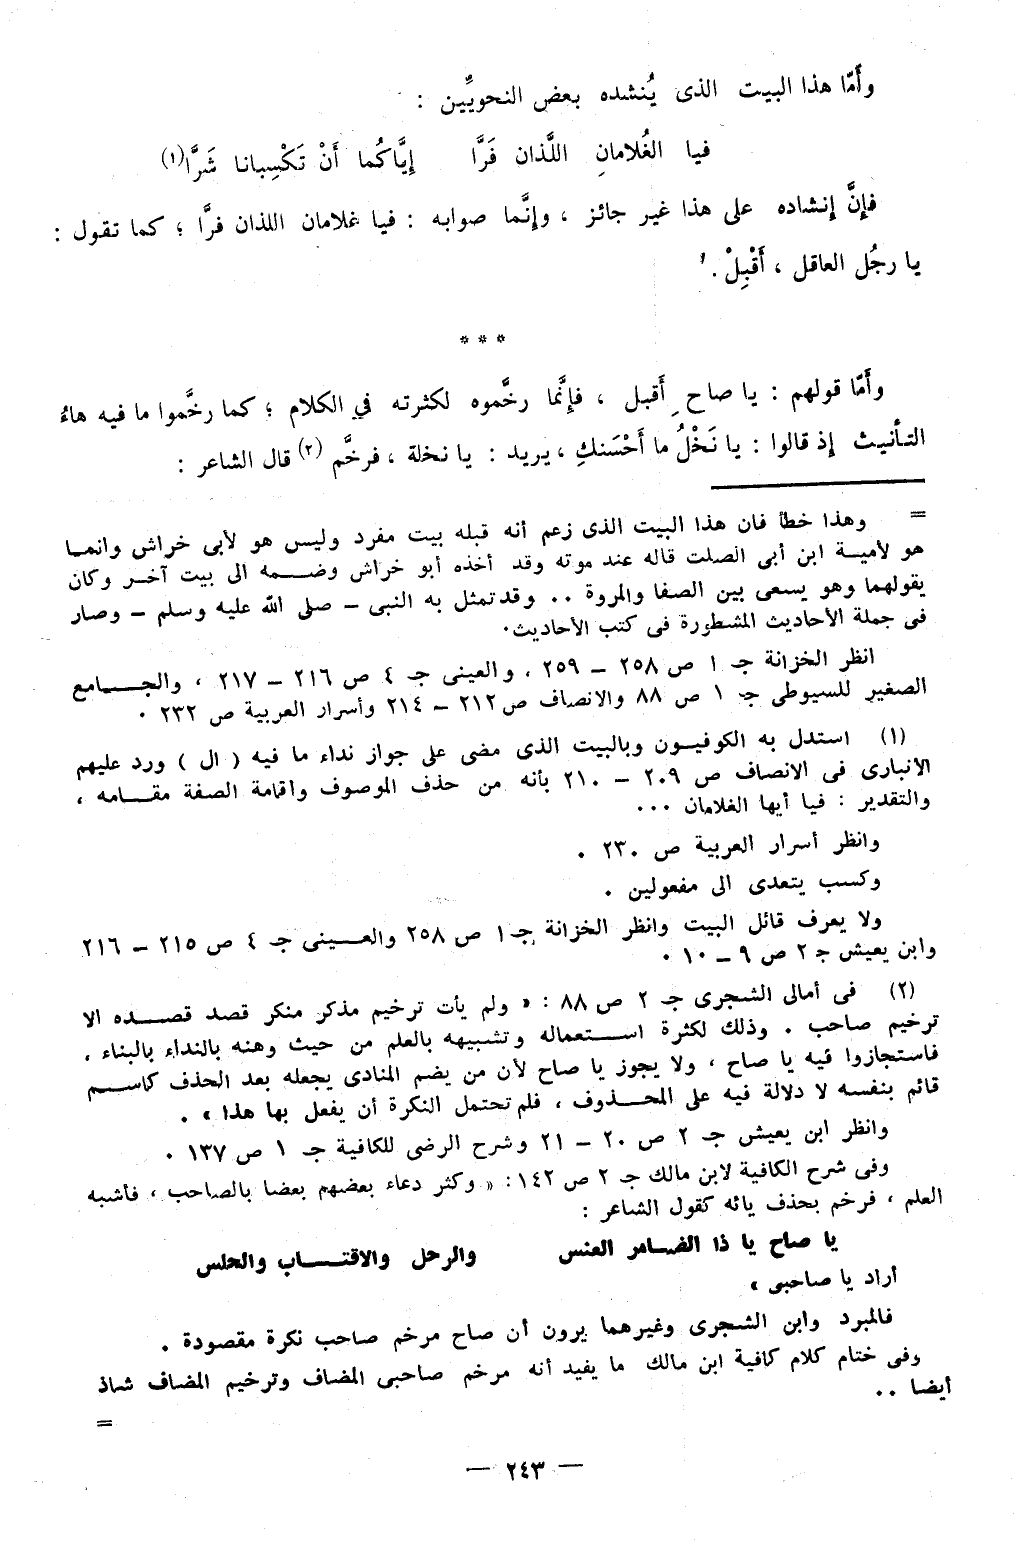 وأَمّا هذا البيت الذى يُنشده بعض النحويِّين :
فيا الغُلامانِ اللَّذان فَرَّا إِيَّاكُما أَنْ تَكْسِبانا شَرَّا(١)
فإِنَّ إِنشاده على هذا غير جائز ، وإِنَّما صوابه : فيا غلامان اللذان فرَّا ؛ كما تقول :
يا رجُل العاقل ، أَقْبِلْ .
* * *
وأَمّا قولهم : يا صاحِ أَقبل ، فإِنَّما رخَّموه لكثرته فى الكلام ؛ كما رخَّموا ما فيه هاءُ
التأْنيث إِذ قالوا : يا نَخْلُ ما أَحْسَنكِ ، يريد : يا نخلة ، فرخَّم (٢) قال الشاعر :
= وهذا خطأ فان هذا البيت الذى زعم أنه قبله بيت مفرد وليس هو لأبى خراش وانما
هو لأمية ابن أبى الصلت قاله عند موته وقد أخذه أبو خراش وضمه الى بيت آخر وكان
يقولهما وهو يسعى بين الصفا والمروة .. وقد تمثل به النبى – صلى الله عليه وسلم – وصار
فى جملة الأحاديث المشطورة فى كتب الأحاديث.
انظر الخزانة جـ ١ ص ٢٥٨ – ٢٥٩ ، والعينى جـ ٤ ص ٢١٦ – ٢١٧ ، والجامع
الصغير للسيوطى جـ ١ ص ٨٨ والانصاف ص ٢١٢ – ٢١٤ وأسرار العربية ص ٢٣٢ .
(١) استدل به الكوفيون وبالبيت الذى مضى على جواز نداء ما فيه ( ال ) ورد عليهم
الأنبارى فى الانصاف ص ٢٠٩ – ٢١٠ بأنه من حذف الموصوف واقامة الصفة مقامه ،
والتقدير : فيا أيها الغلامان ...
وانظر أسرار العربية ص ٢٣٠ .
وكسب يتعدى الى مفعولين .
ولا يعرف قائل البيت وانظر الخزانة جـ ١ ص ٢٥٨ والعينى جـ ٤ ص ٢١٥ – ٢١٦
وابن يعيش جـ ٢ ص ٩ – ١٠ .
(٢) فى أمالى الشجرى جـ ٢ ص ٨٨ : « ولم يأت ترخيم مذكر منكر قصد قصده الا
ترخيم صاحب . وذلك لكثرة استعماله وتشبيهه بالعلم من حيث وهنه بالنداء بالبناء ،
فاستجازوا فيه يا صاح ، ولا يجوز يا صاح لأن من يضم المنادى يجعله بعد الحذف كاسم
قائم بنفسه لا دلالة فيه على المحذوف ، فلم تحتمل النكرة أن يفعل بها هذا » .
وانظر ابن يعيش جـ ٢ ص ٢٠ – ٢١ وشرح الرضى للكافية جـ ١ ص ١٣٧ .
وفى شرح الكافية لابن مالك جـ ٢ ص ١٤٢ : « وكثر دعاء بعضهم بعضا بالصاحب ، فأشبه
العلم ، فرخم بحذف يائه كقول الشاعر :
يا صاح يا ذا الضامر العنس والرحل والاقتاب والحلس
أراد يا صاحبى »
فالمبرد وابن الشجرى وغيرهما يرون أن صاح مرخم صاحب نكرة مقصودة .
وفى ختام كلام كافية ابن مالك ما يفيد أنه مرخم صاحبى المضاف وترخيم المضاف شاذ
أيضا ..
=
— ٢٤٣ —